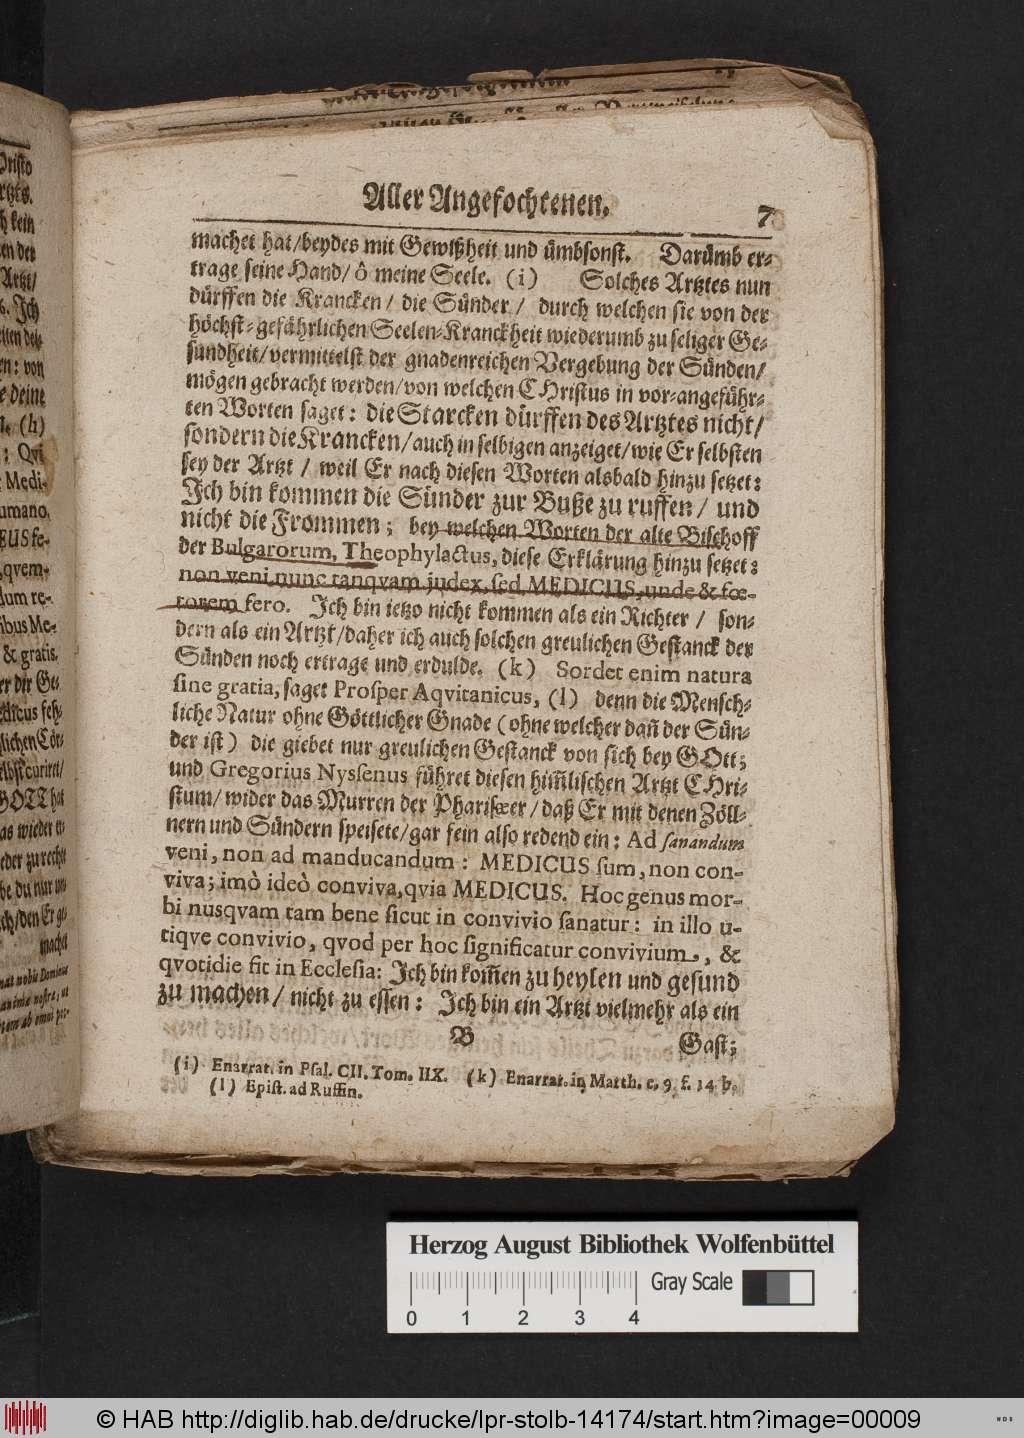 Aller Angefochtenen. 7
machet hat/beydes mit Gewißheit und ümbsonst. Darümb er-
trage seine Hand/ ô meine Seele. (i) Solches Artztes nun
dürffen die Krancken / die Sünder / durch welchen sie von der
höchst-gefährlichen Seelen-Kranckheit wiederumb zu seliger Ge-
sundheit/vermittelst der gnadenreichen Vergebung der Sünden/
mögen gebracht werden/von welchen CHristus in vor-angeführ-
ten Worten saget: die Starcken dürffen des Artztes nicht/
sondern die Krancken/auch in selbigen anzeiget/wie Er selbsten
sey der Artzt / weil Er nach diesen Worten alsbald hinzu setzet:
Ich bin kommen die Sünder zur Buße zu ruffen/ und
nicht die Frommen; bey welchen Worten der alte Bischoff
der Bulgarorum, Theophylactus, diese Erklärung hinzu setzet:
non veni nunc tanqvam judex, sed MEDICUS, unde & fœ-
torem fero. Ich bin ietzo nicht kommen als ein Richter / son-
dern als ein Artzt/daher ich auch solchen greulichen Gestanck der
Sünden noch ertrage und erdulde. (k) Sordet enim natura
sine gratia, saget Prosper Aqvitanicus, (l) denn die Mensch-
liche Natur ohne Göttlicher Gnade (ohne welcher dañ der Sün-
der ist) die giebet nur greulichen Gestanck von sich bey GOtt;
und Gregorius Nyssenus führet diesen him̃lischen Artzt CHri-
stum/wider das Murren der Pharisæer/daß Er mit denen Zöll-
nern und Sündern speisete/gar fein also redend ein: Ad sanandum
veni, non ad manducandum: MEDICUS sum, non con-
viva; imò ideò conviva, qvia MEDICUS. Hoc genus mor-
bi nusqvam tam bene sicut in convivio sanatur: in illo u-
tiqve convivio, qvod per hoc significatur convivium, &
qvotidie fit in Ecclesia: Ich bin kom̃en zu heylen und gesund
zu machen/ nicht zu essen: Ich bin ein Artzt vielmehr als ein
B Gast;
(i) Enarrat. in Psal. CII. Tom. IIX. (k) Enarrat. in Matth. c. 9. f. 14 b.
(l) Epist. ad Ruffin.
Christo
Artzts.
kein
Artzt/
Ich
von
deine
(h)
: Qvi
Medi-
umano.
EUS fe-
qvem-
dum re-
ibus Me-
& gratis.
er dir Ge-
edicus feh-
GOTT hat
machet
Herzog August Bibliothek Wolfenbüttel
Gray Scale
0 1 2 3 4
© HAB http://diglib.hab.de/drucke/lpr-stolb-14174/start.htm?image=00009